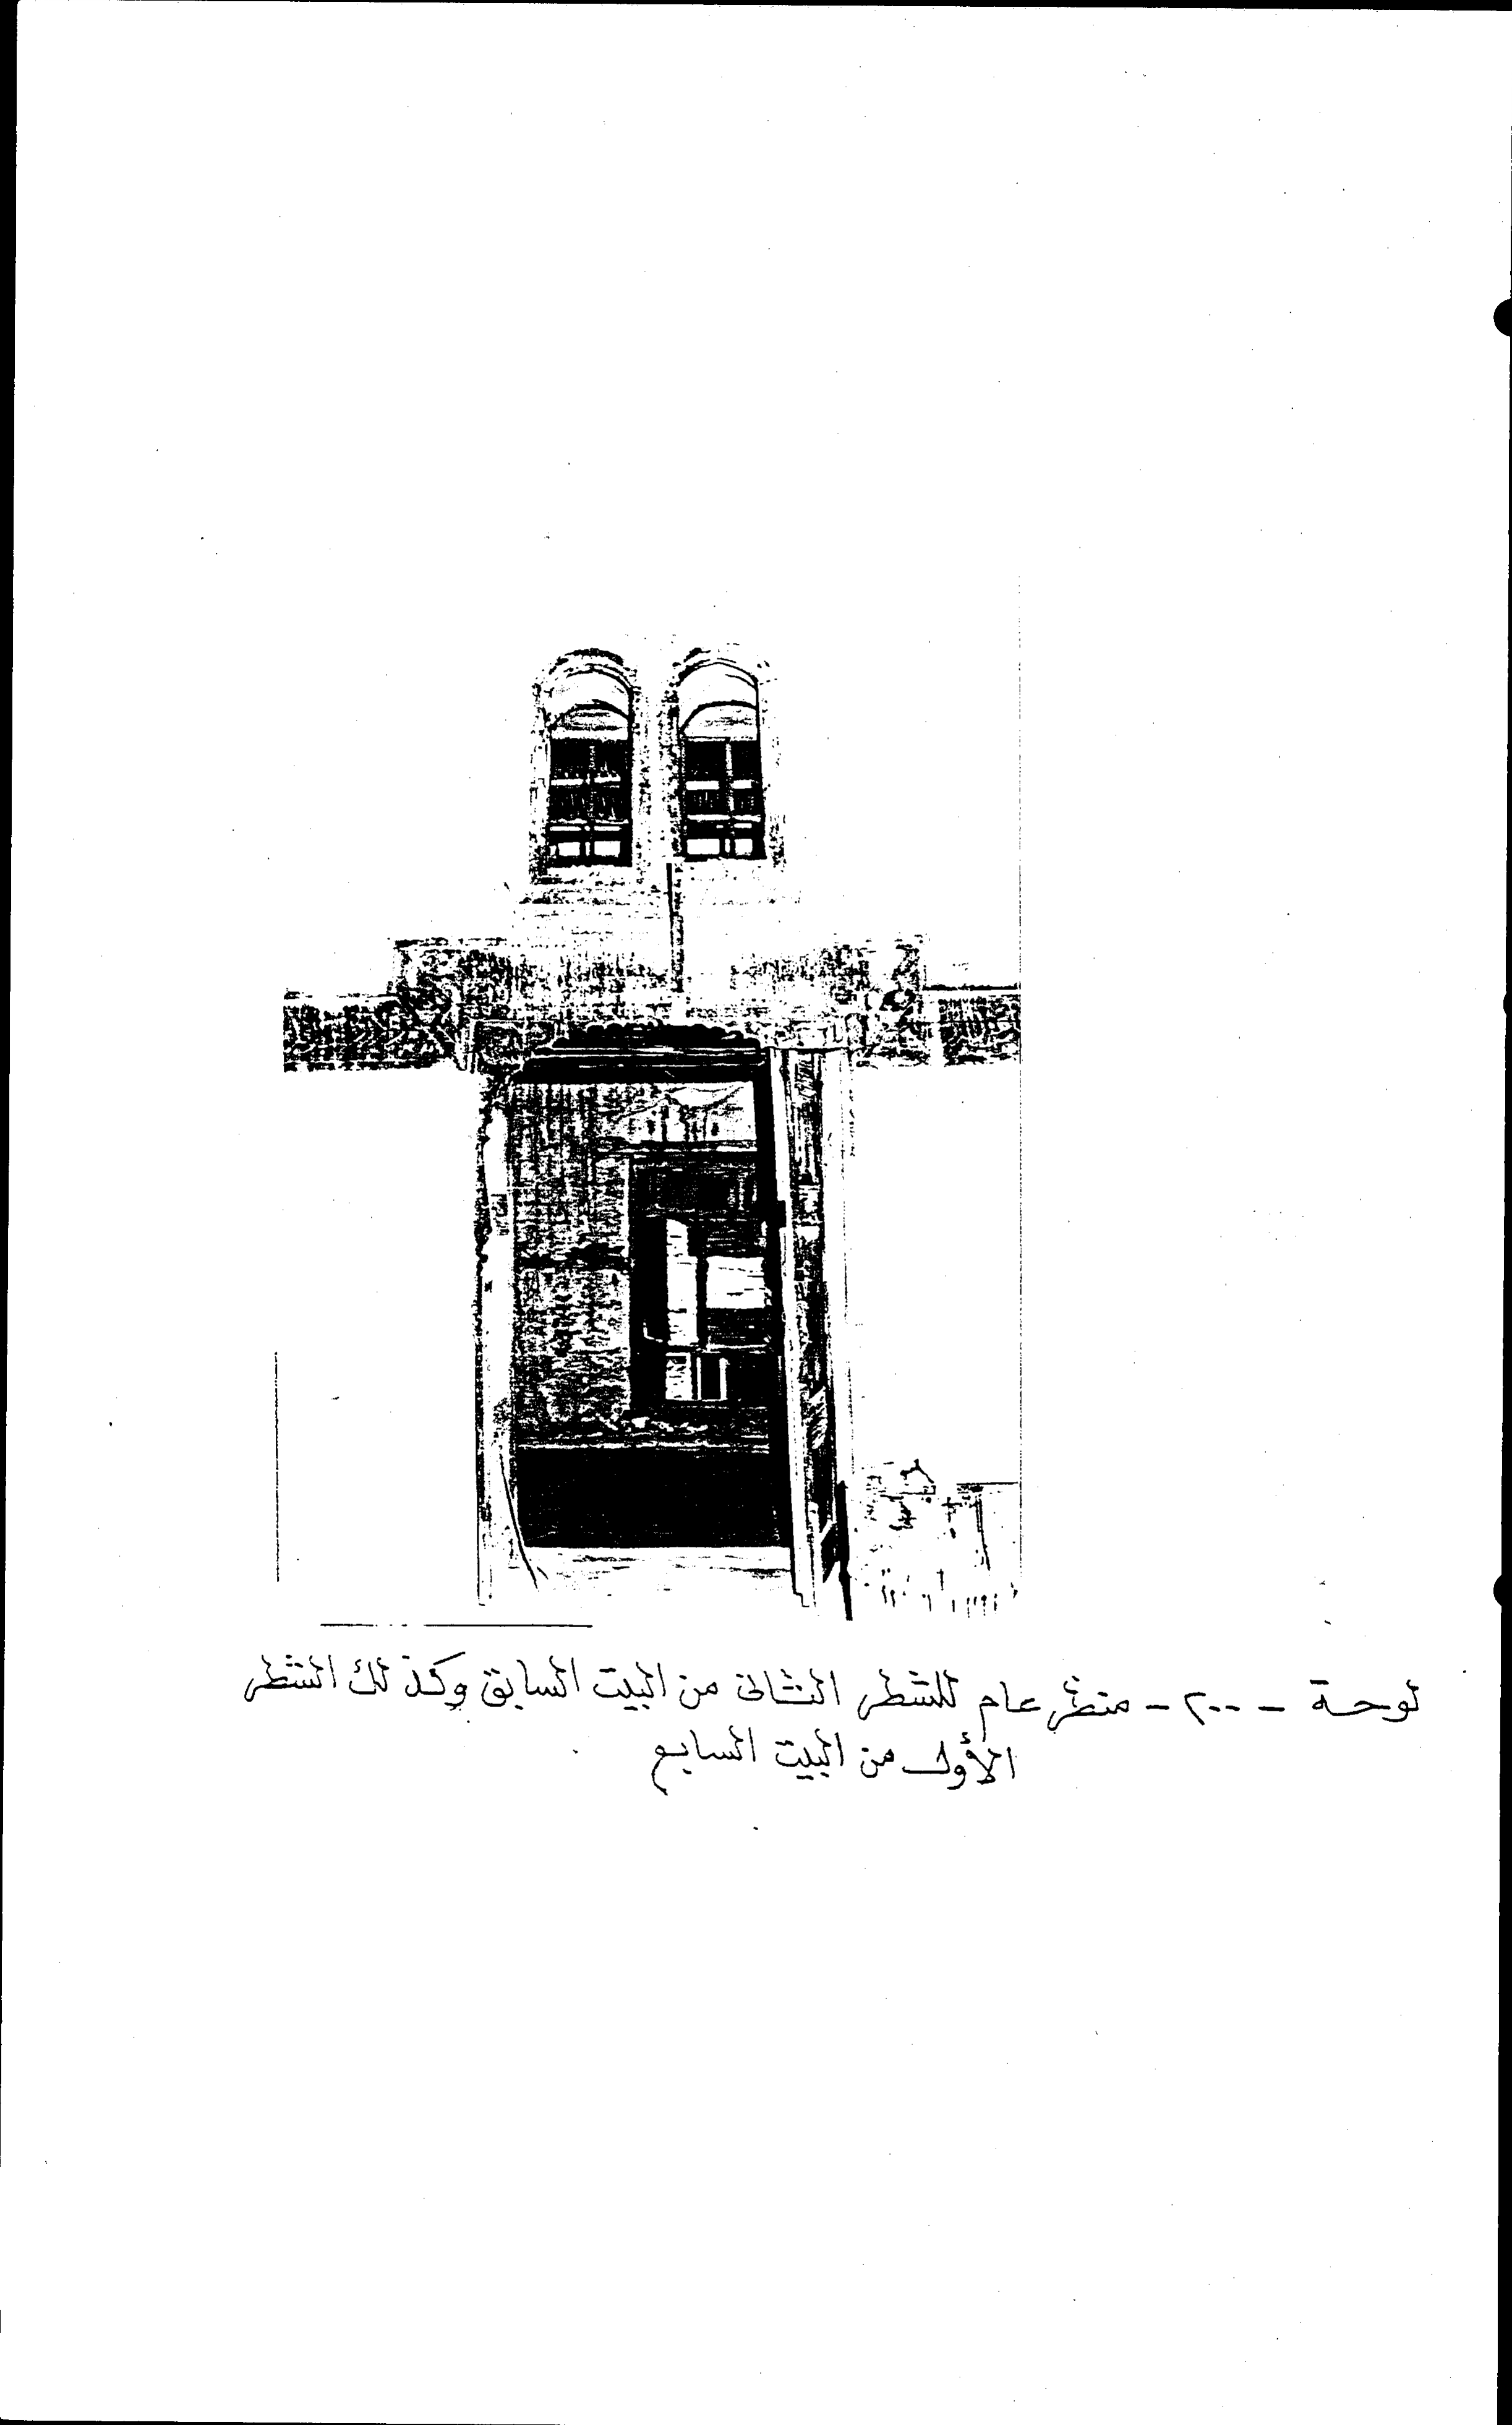 لوحة - ٢٠٠ - منظر عام للشطر الثانى من البيت السابق وكذلك الشطر
الأول من البيت السابع